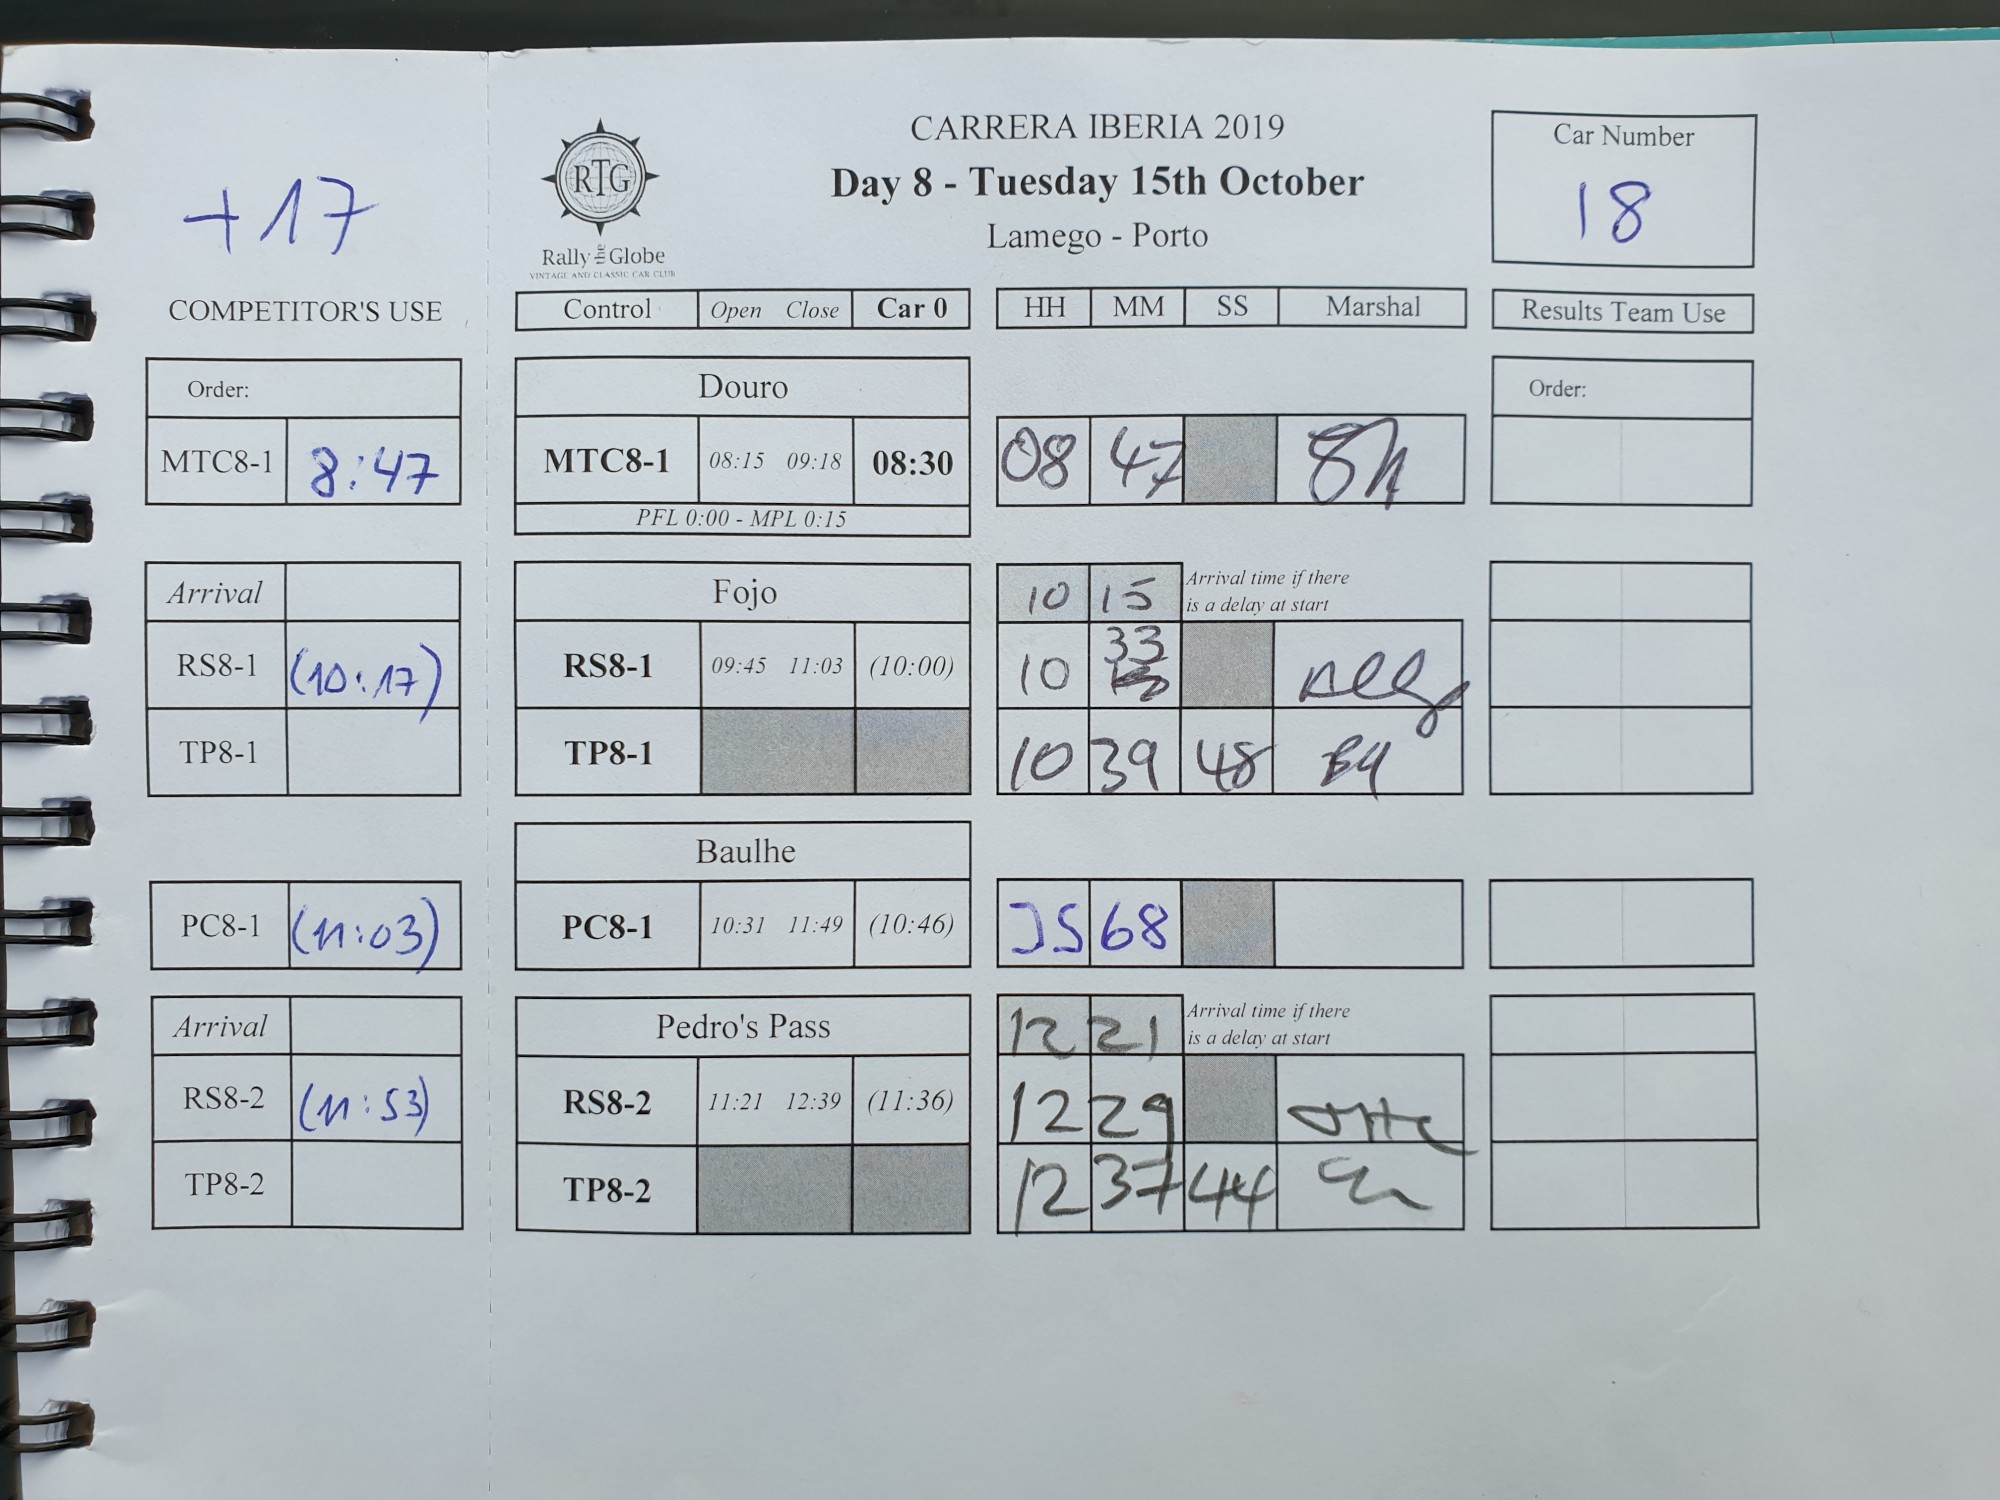 CARRERA IBERIA 2019
Day 8 - Tuesday 15th October
Lamego - Porto
RTG
Rally the Globe
VINTAGE AND CLASSIC CAR CLUB
Car Number
18
+17
COMPETITOR'S USE
Control Open Close Car 0 HH MM SS Marshal Results Team Use
Order: Douro Order:
MTC8-1 8:47 MTC8-1 08:15 09:18 08:30 08 47
PFL 0:00 - MPL 0:15
Arrival Fojo 10 15 Arrival time if there
is a delay at start
RS8-1 (10:17) RS8-1 09:45 11:03 (10:00) 10 33
TP8-1 TP8-1 10 39 48
Baulhe
PC8-1 (11:03) PC8-1 10:31 11:49 (10:46) JS 68
Arrival Pedro's Pass 12 21 Arrival time if there
is a delay at start
RS8-2 (11:53) RS8-2 11:21 12:39 (11:36) 12 29
TP8-2 TP8-2 12 37 44